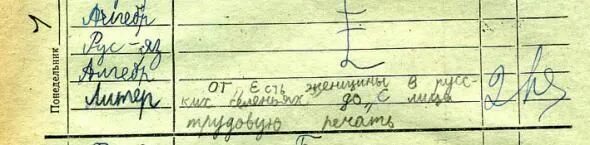 1
Понедельник
Алгебр
Рус-яз
Алгебр
Литер
от „Есть женщины в русс-
ких селеньях" до „С лица
трудовую печать
2